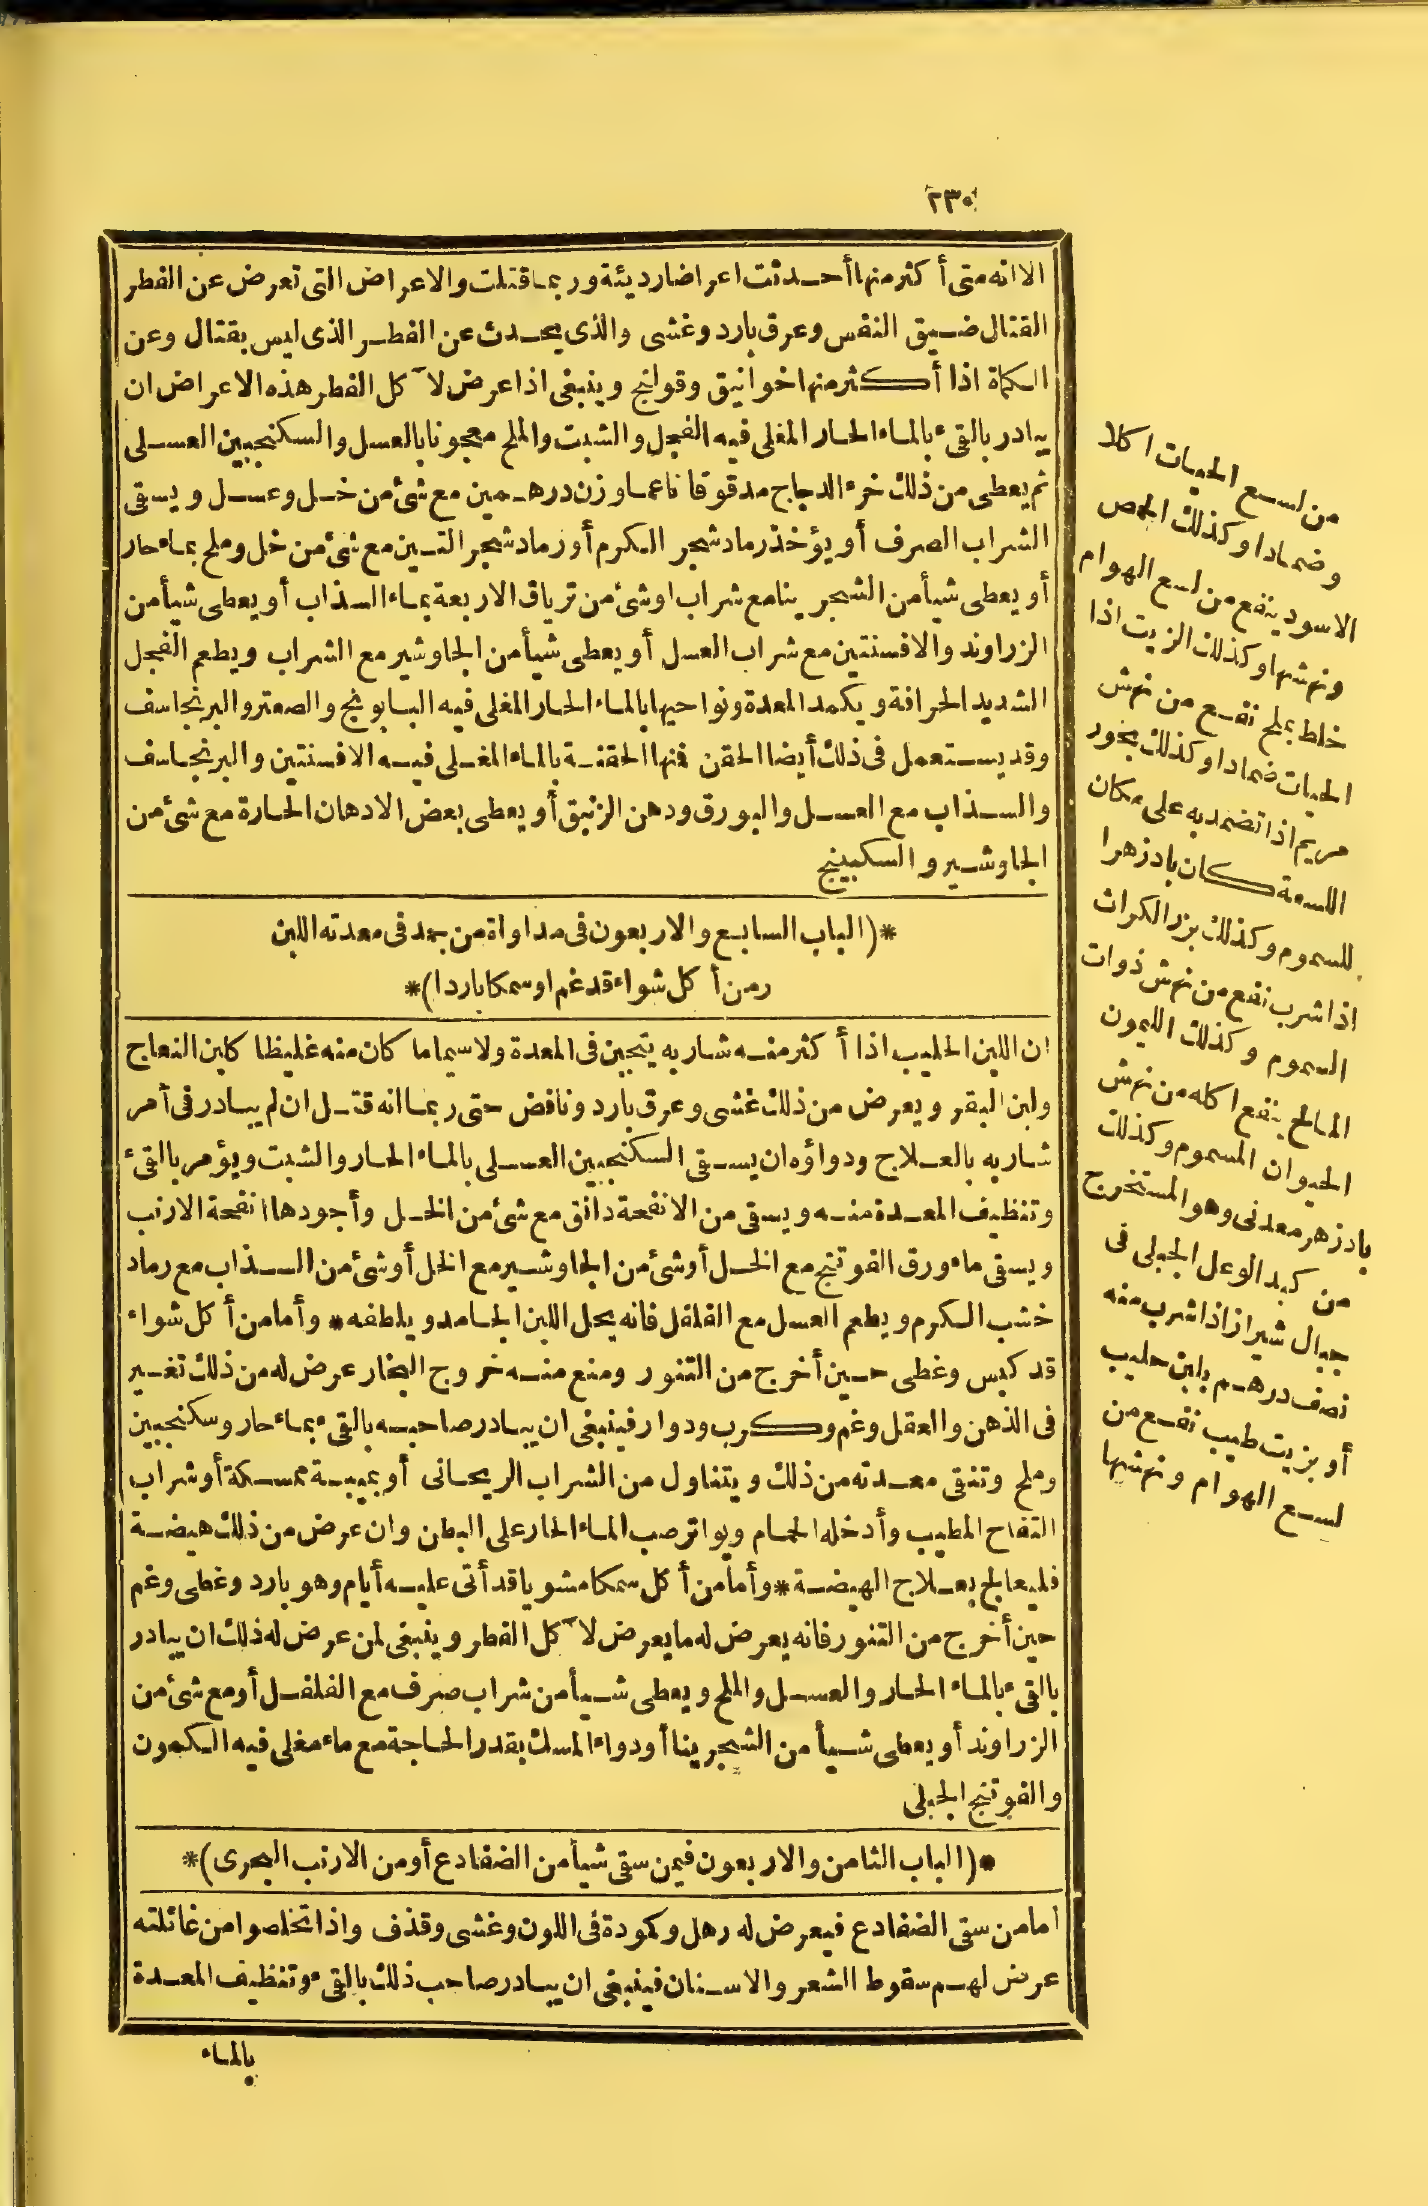 ٢٣٠
الا انه متى أكثر منها أحدثت اعراضا رديئة وربما قتلت والاعراض التى تعرض عن الفطر
القتال ضيق النفس وعرق بارد وغشى والذى يحدث عن الفطر الذى ليس بقتال وعن
الكماة اذا أكثر منها خوانيق وقولنج وينبغى اذا عرض لآكل الفطر هذه الاعراض ان
يبادر بالقىء بالماء الحار المغلى فيه الفجل والشبت والملح معجونا بالعسل والسكنجبين العسلى
ثم يعطى من ذلك خرء الدجاج مدقوقا ناعما وزن درهمين مع شئ من خل وعسل ويسقى
الشراب الصرف أو يؤخذ رماد شجر الكرم أو رماد شجر التين مع شئ من خل وملح بماء حار
أو يعطى شيأ من الشجرينا مع شراب اوشئ من ترياق الاربعة بماء السذاب أو يعطى شيأ من
الزراوند والافسنتين مع شراب العسل أو يعطى شيأ من الجاوشير مع الشراب ويطعم الفجل
الشديد الحرافة ويكمد المعدة ونواحيها بالماء الحار المغلى فيه البابونج والصعتر والبرنجاسف
وقد يستعمل فى ذلك أيضا الحقن فنها الحقنة بالماء المغلى فيه الافسنتين والبرنجاسف
والسذاب مع العسل والبورق ودهن الزنبق أو يعطى بعض الادهان الحارة مع شئ من
الجاوشير والسكبينج
*(الباب السابع والاربعون فى مداواة من جمد فى معدته اللبن
ومن أكل شواء قد غم او سمكا باردا)*
ان اللبن الحليب اذا أكثر منه شاربه يتجبن فى المعدة ولا سيما ما كان منه غليظا كلبن النعاج
ولبن البقر ويعرض من ذلك غشى وعرق بارد ونافض حتى ربما انه قتل ان لم يبادر فى أمر
شاربه بالعلاج ودواؤه ان يسقى السكنجبين العسلى بالماء الحار والشبت ويؤمر بالقىء
وتنظيف المعدة منه ويسقى من الانفحة دانق مع شئ من الخل وأجودها انفحة الارنب
ويسقى ماء ورق الفوتنج مع الخل أوشئ من الجاوشير مع الخل أوشئ من السذاب مع رماد
خشب الكرم ويطعم العسل مع الفلفل فانه يحل اللبن الجامد ويلطفه * وأما من أكل شواء
قد كبس وغطى حين أخرج من التنور ومنع منه خروج البخار عرض له من ذلك تغير
فى الذهن والعقل وغم وكرب ودوار فينبغى ان يبادر صاحبه بالقىء بماء حار وسكنجبين
وملح وتنقى معدته من ذلك ويتناول من الشراب الريحانى أو بميبة ممسكة أو شراب
التفاح المطيب وأدخله الحمام ويواتر صب الماء الحار على البطن وان عرض من ذلك هيضة
فليعالج بعلاج الهيضة * وأما من أكل سمكا مشويا قد أتى عليه أيام وهو بارد وغطى وغم
حين أخرج من التنور فانه يعرض له ما يعرض لآكل الفطر وينبغى لمن عرض له ذلك ان يبادر
بالقىء بالماء الحار والعسل والملح ويعطى شيأ من شراب صرف مع الفلفل أو مع شئ من
الزراوند أو يعطى شيأ من الشجرينا أو دواء المسك بقدر الحاجة مع ماء مغلى فيه الكمون
والفوتنج الجبلى
*(الباب الثامن والاربعون فيمن سقى شيأ من الضفادع أو من الارنب البحرى)*
أما من سقى الضفادع فيعرض له رهل وكمودة فى اللون وغشى وقذف واذا تخلصوا من غائلته
عرض لهم سقوط الشعر والاسنان فينبغى ان يبادر صاحب ذلك بالقىء وتنظيف المعدة
بالماء
من لسع الحيات اكلا
وضمادا وكذلك الحمص
الاسود ينفع من لسع الهوام
ونهشها وكذلك الزيت اذا
خلط بملح نفع من نهش
الحيات ضمادا وكذلك بخور
مريم اذا تضمد به على مكان
اللسعة كان بادزهرا
للسموم وكذلك بزر الكراث
اذا شرب نفع من نهش ذوات
السموم وكذلك الليمون
المالح ينفع اكله من نهش
الحيوان المسموم وكذلك
بادزهر معدنى وهو المستخرج
من كبد الوعل الجبلى فى
جبال شيراز اذا شرب منه
نصف درهم بلبن حليب
أو بزيت طيب نفع من
لسع الهوام ونهشها